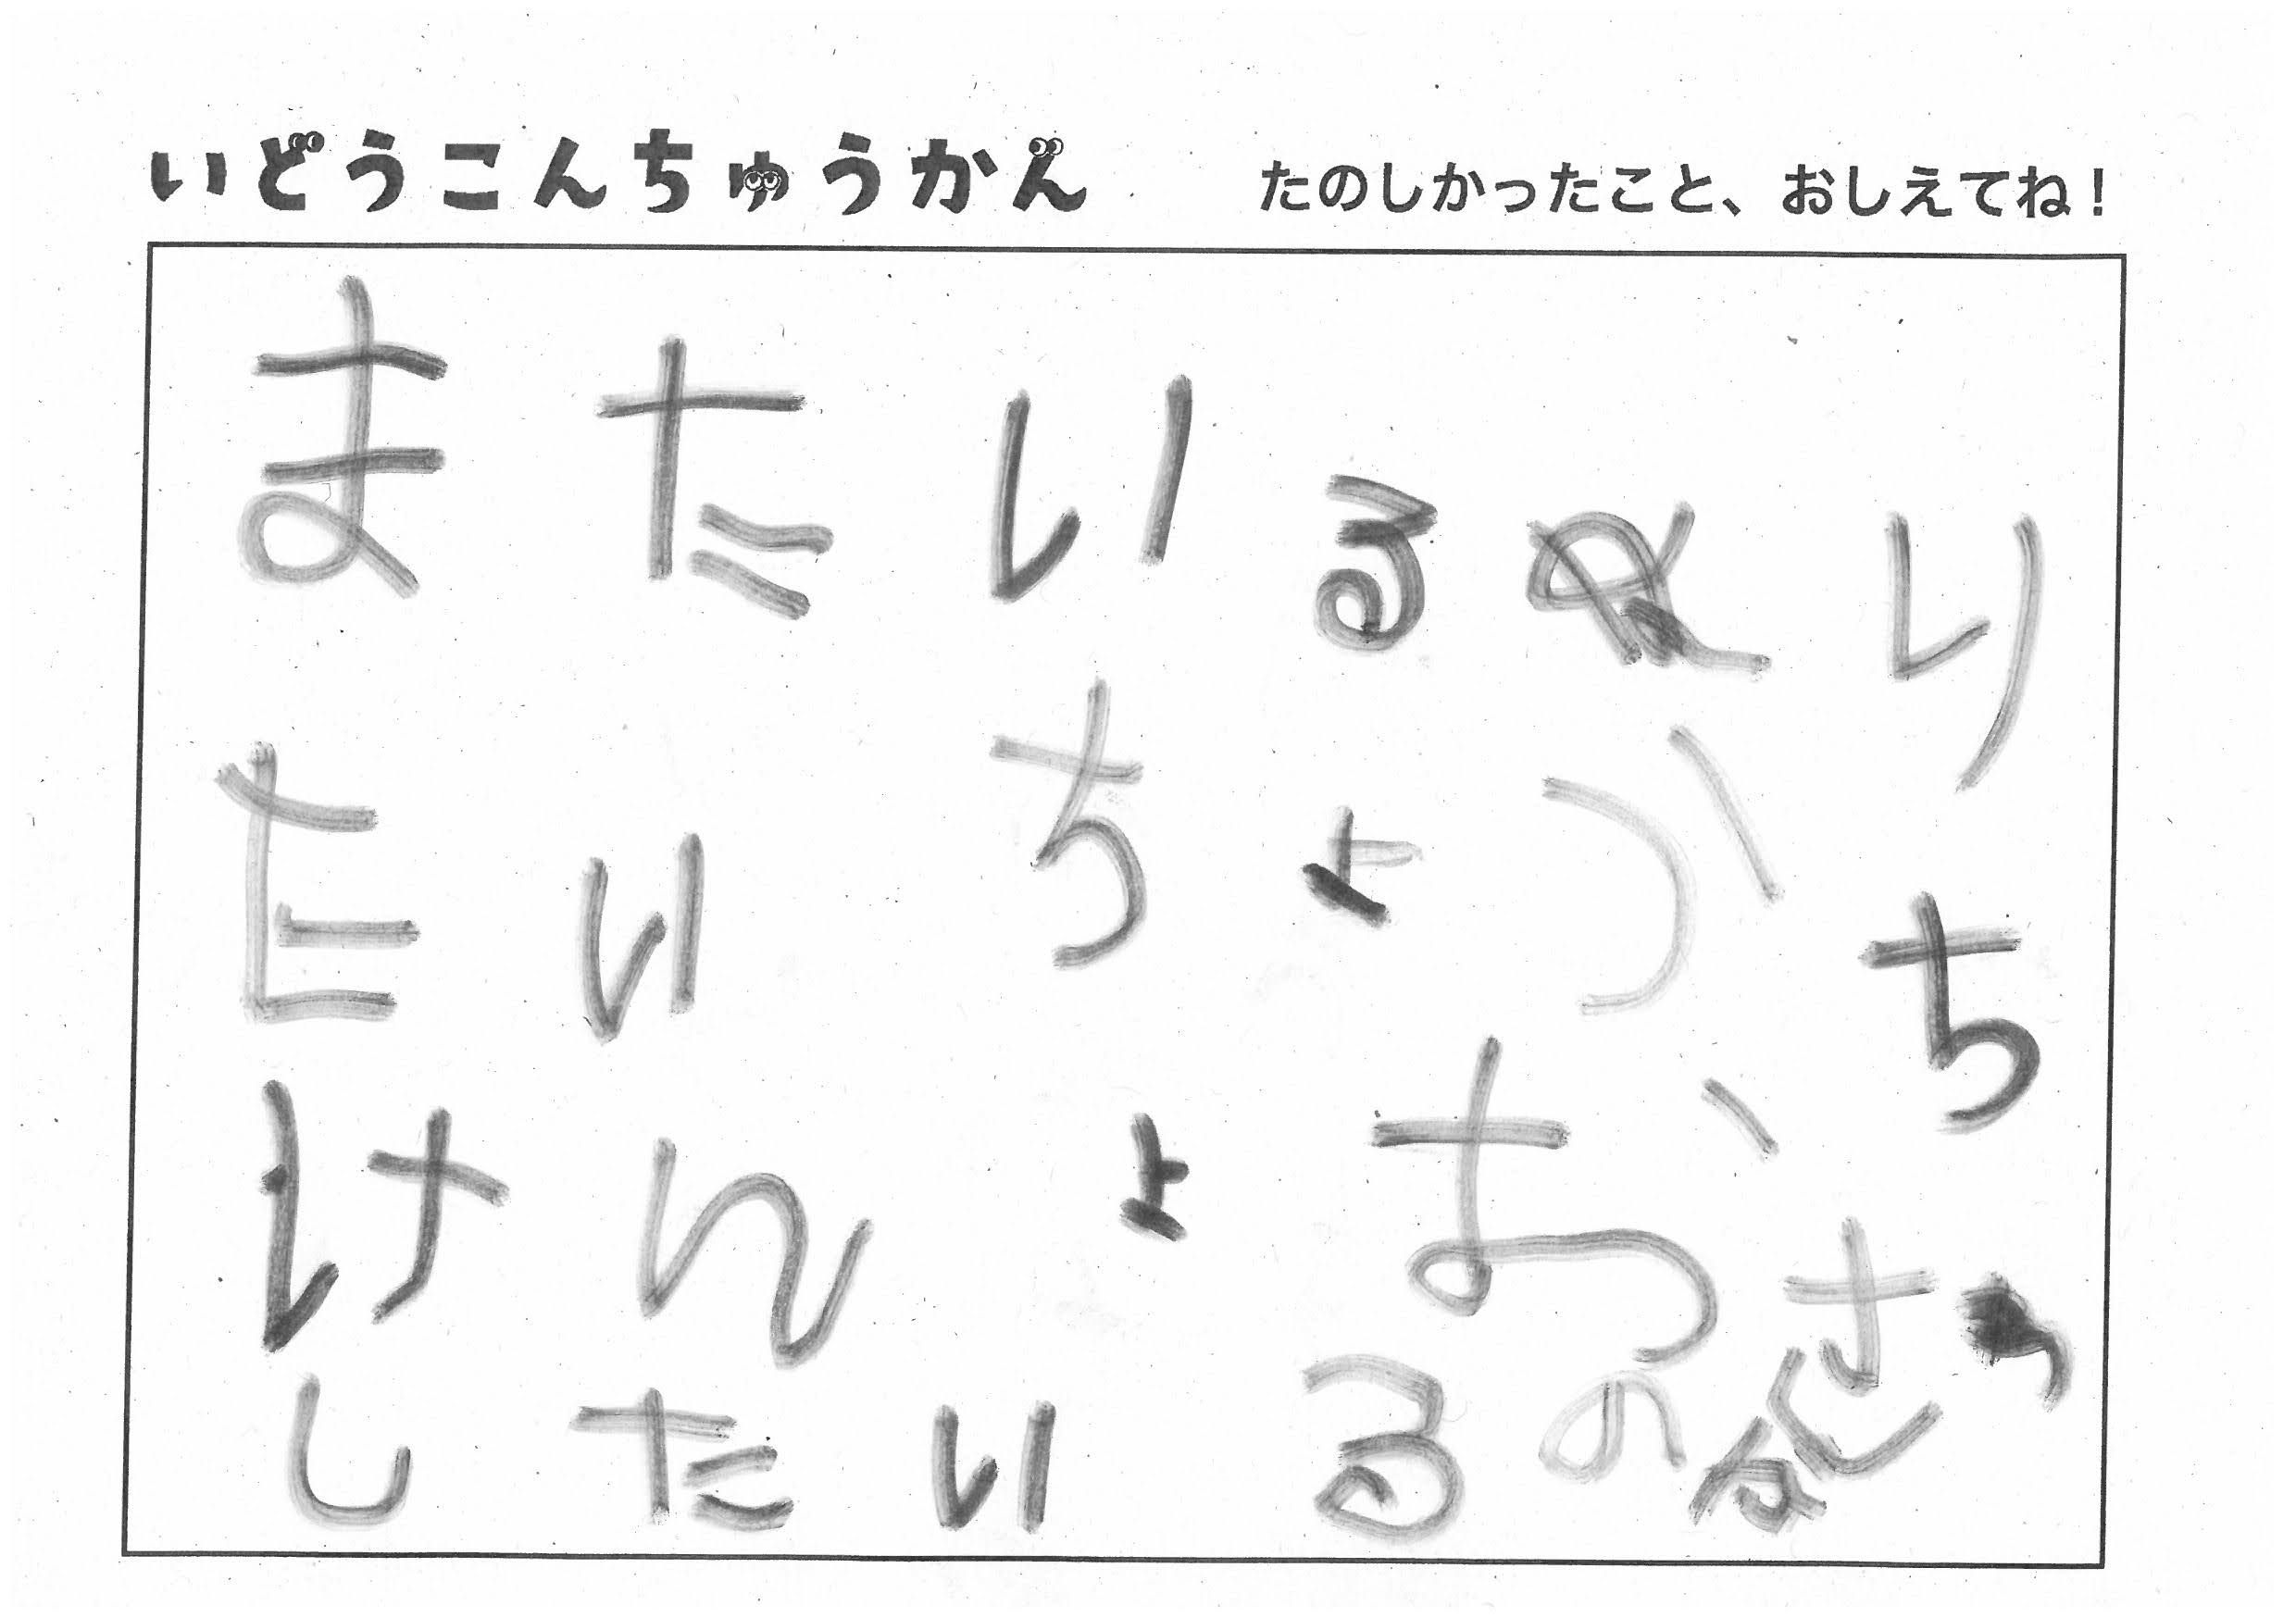 いどうこんちゅうかん
たのしかったこと、おしえてね!
またいるぬり
たいちょうち
けんょおさ
したいるの